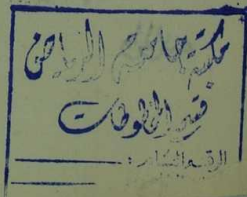 مكتبة جامعة الرياض
قسم المخطوطات
الرقم العام: